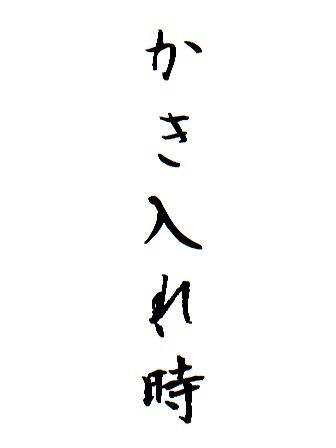 かき入れ時